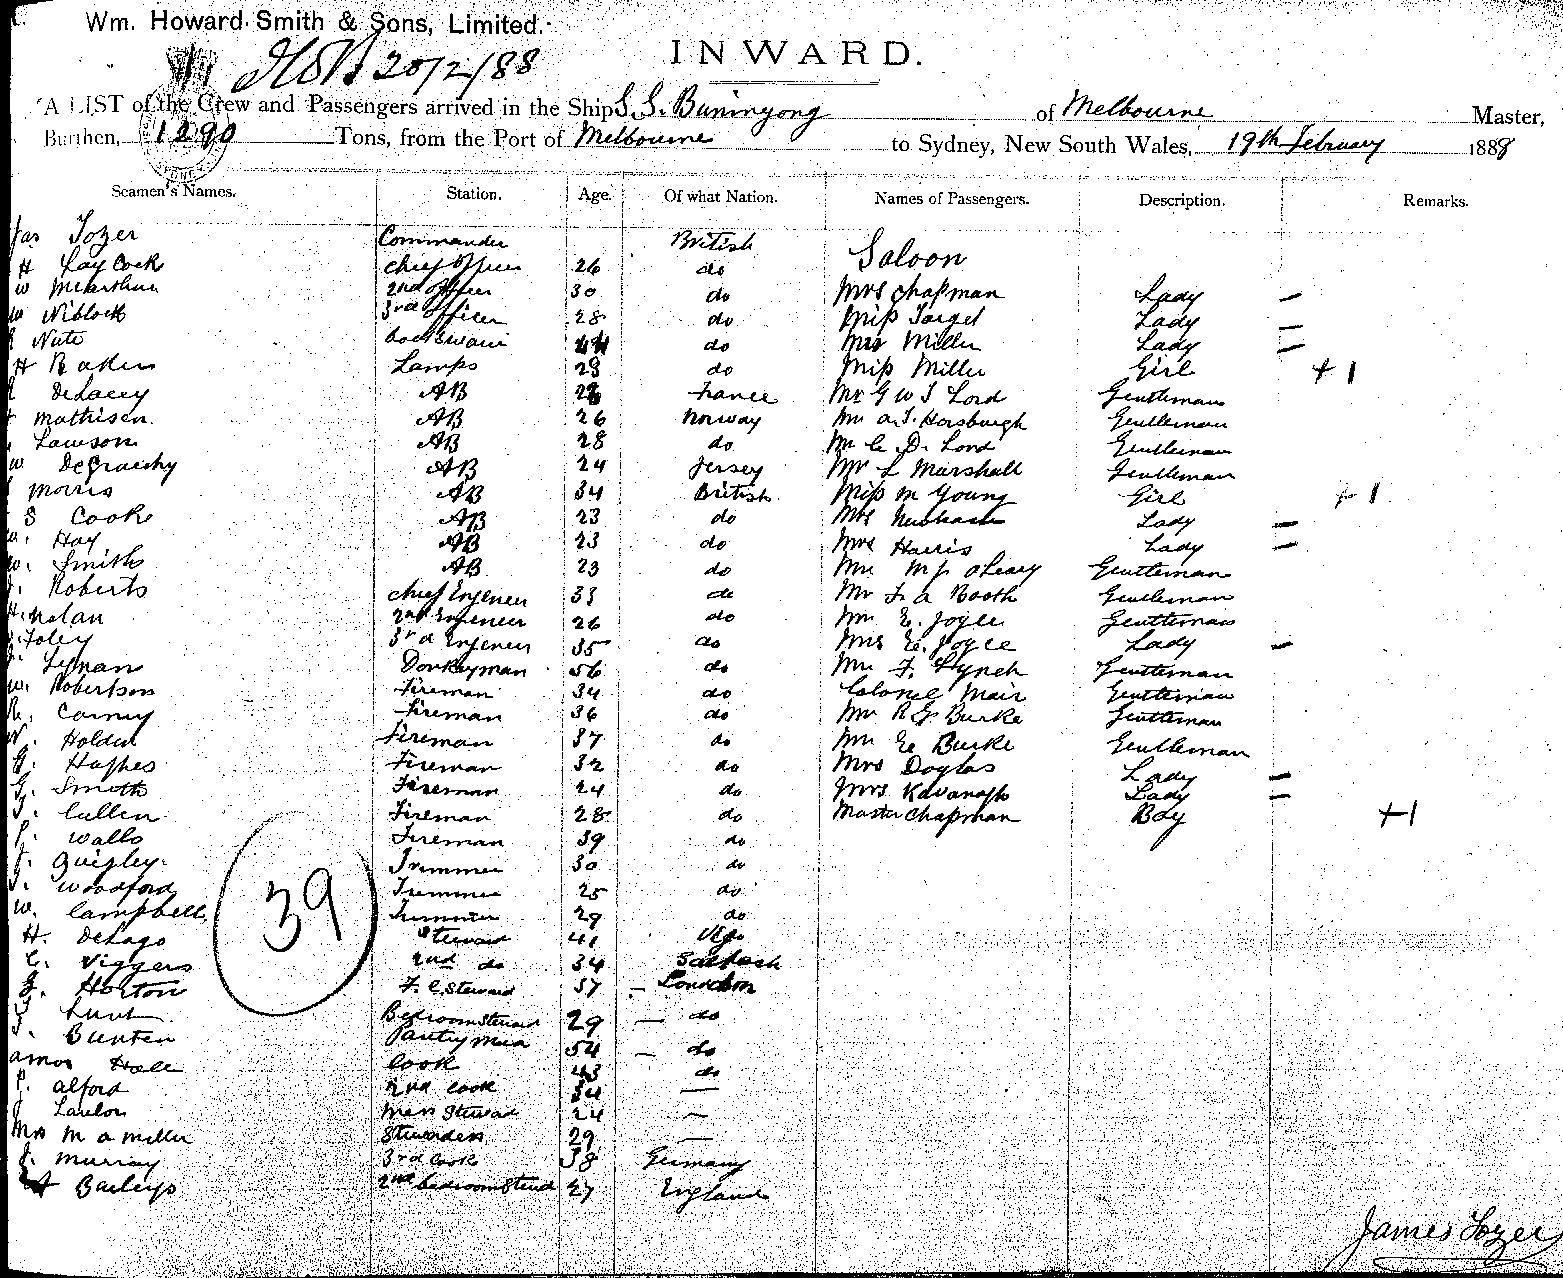 Wm. Howard Smith & Sons, Limited.
20/2/88
INWARD.
A LIST of the Crew and Passengers arrived in the Ship S.S. Buninyong of Melbourne Master,
Burthen, 1290 Tons, from the Port of Melbourne to Sydney, New South Wales, 19th February 1888
Seamen's Names. Station. Age. Of what Nation. Names of Passengers. Description. Remarks.
Jas Tozer Commander British Saloon
H Laycock chief officer 26 do
W McArthur 2nd officer 30 do Mrs Chapman Lady —
W Niblock 3rd officer 28 do Miss Target Lady —
Nute boatswain do Mrs Miller Lady —
H Baker Lamps 28 do Miss Miller Girl +1
DeLacey AB France Mr G W J Lord Gentleman
Mathisen AB 26 Norway Mr A. J. Horsburgh Gentleman
Lawson AB 28 do Mr C. D. Lord Gentleman
W DeGruchy AB 24 Jersey Mr L Marshall Gentleman
Morris AB 34 British Miss M Young Girl +1
S Cook AB 23 do Mrs Lady —
W. Hay AB 23 do Mrs Harris Lady —
W. Smith AB 23 do Mr M J O'Leary Gentleman
Roberts chief Engeneer 33 do Mr F. A Booth Gentleman
H. Nolan 2nd Engeneer 26 do Mr E. Joyce Gentleman
Foley 3rd Engeneer 35 do Mrs E. Joyce Lady —
Lynan Donkeyman 56 do Mr F. Lynch Gentleman
W. Robertson Fireman 34 do Colonel Mair Gentleman
R. Carney Fireman 36 do Mr R G Burke Gentleman
W. Holden Fireman 37 do Mr E Burke Gentleman
G. Hughes Fireman 32 do Mrs Doglas Lady —
G. Smith Fireman 24 do Mrs Kavanagh Lady —
T. Cullen Fireman 28 do Master Chapman Boy +1
J. Walls Fireman 39 do
J. Quigley Trimmer 30 do
J. Woodford Trimmer 25 do
W. Campbell Trimmer 29 do
39
H. DeLago Steward 41 Vigo
C. Viggers 2nd do 34 Saltash
J. Horton F. C. Steward 37 — London
Lunt Bedroom Steward 29 — do
Bunten Pantry Man 54 — do
Amos Hale Cook 43 do
P. Alford 2nd Cook 34 —
J Lawlor Mess Steward 24 —
Mrs M A Miller Stewardess 29 —
J. Murray 3rd Cook 38 Germany
Baileys 2nd bedroom Steward 27 England
James Tozer